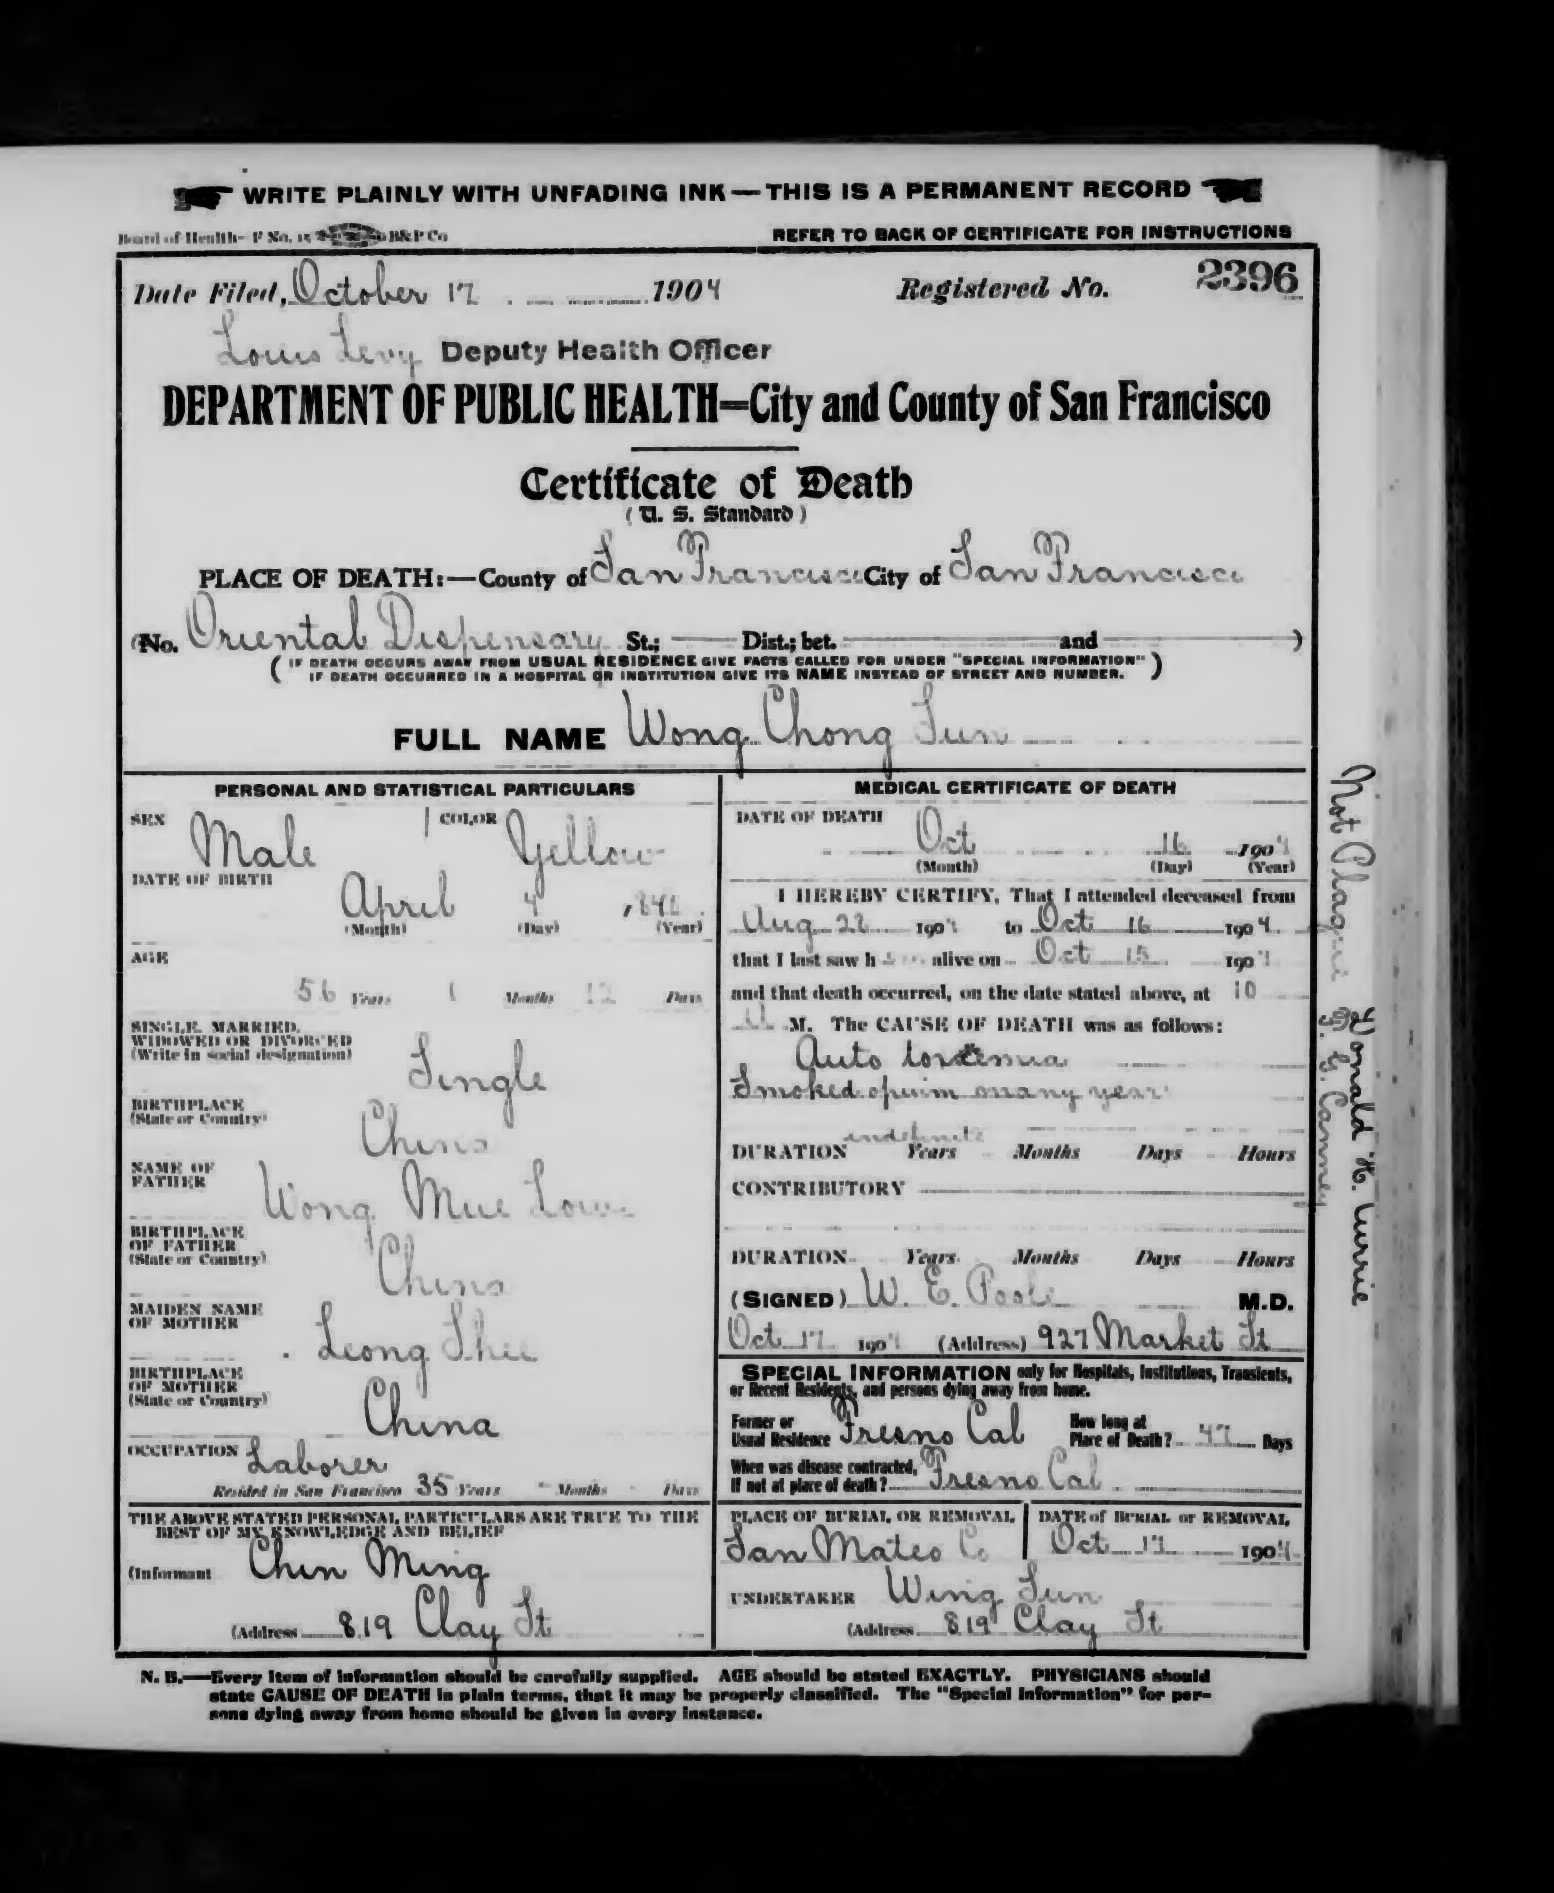 WRITE PLAINLY WITH UNFADING INK — THIS IS A PERMANENT RECORD
Board of Health- F No. 15 B&P Co
REFER TO BACK OF CERTIFICATE FOR INSTRUCTIONS
Date Filed, October 17 1904 Registered No. 2396
Louis Levy Deputy Health Officer
DEPARTMENT OF PUBLIC HEALTH=City and County of San Francisco
Certificate of Death
( U. S. Standard )
PLACE OF DEATH:—County of San Francisco City of San Francisco
(No. Oriental Dispensary St.; Dist.; bet. and )
( IF DEATH OCCURS AWAY FROM USUAL RESIDENCE GIVE FACTS CALLED FOR UNDER "SPECIAL INFORMATION" )
IF DEATH OCCURRED IN A HOSPITAL OR INSTITUTION GIVE ITS NAME INSTEAD OF STREET AND NUMBER.
FULL NAME Wong Chong Sun
PERSONAL AND STATISTICAL PARTICULARS
SEX Male COLOR Yellow
DATE OF BIRTH
April 4
(Month) (Day) (Year)
AGE
56 Years 1 Months 12 Days
SINGLE, MARRIED,
WIDOWED OR DIVORCED
(Write in social designation)
Single
BIRTHPLACE
(State or Country)
China
NAME OF
FATHER
Wong Mue Lowe
BIRTHPLACE
OF FATHER
(State or Country)
China
MAIDEN NAME
OF MOTHER
Leong Shee
BIRTHPLACE
OF MOTHER
(State or Country)
China
OCCUPATION Laborer
Resided in San Francisco 35 Years - Months Days
THE ABOVE STATED PERSONAL PARTICULARS ARE TRUE TO THE
BEST OF MY KNOWLEDGE AND BELIEF
(Informant Chin Ming
(Address 819 Clay St
MEDICAL CERTIFICATE OF DEATH
DATE OF DEATH
Oct 16 1904
(Month) (Day) (Year)
I HEREBY CERTIFY, That I attended deceased from
Aug 22 1904 to Oct 16 1904
that I last saw h alive on Oct 15 1904
and that death occurred, on the date stated above, at 10
M. The CAUSE OF DEATH was as follows:
Auto toxemia
Smoked opuim many years
indefinite
DURATION Years Months Days Hours
CONTRIBUTORY
DURATION Years Months Days Hours
(SIGNED) W. E. Poole M.D.
Oct 17 1904 (Address) 927 Market St
SPECIAL INFORMATION only for Hospitals, Institutions, Transients,
or Recent Residents, and persons dying away from home.
Former or
Usual Residence Fresno Cal
How long at
Place of Death? 47 Days
When was disease contracted,
If not at place of death? Fresno Cal
PLACE OF BURIAL OR REMOVAL
San Mateo Co
DATE of BURIAL or REMOVAL
Oct 17 1904
UNDERTAKER Wing Sun
(Address 819 Clay St
N. B.—Every item of information should be carefully supplied. AGE should be stated EXACTLY. PHYSICIANS should
state CAUSE OF DEATH in plain terms, that it may be properly classified. The "Special Information" for per-
sons dying away from home should be given in every instance.
Not Plague
Donald H. Currie
Canney